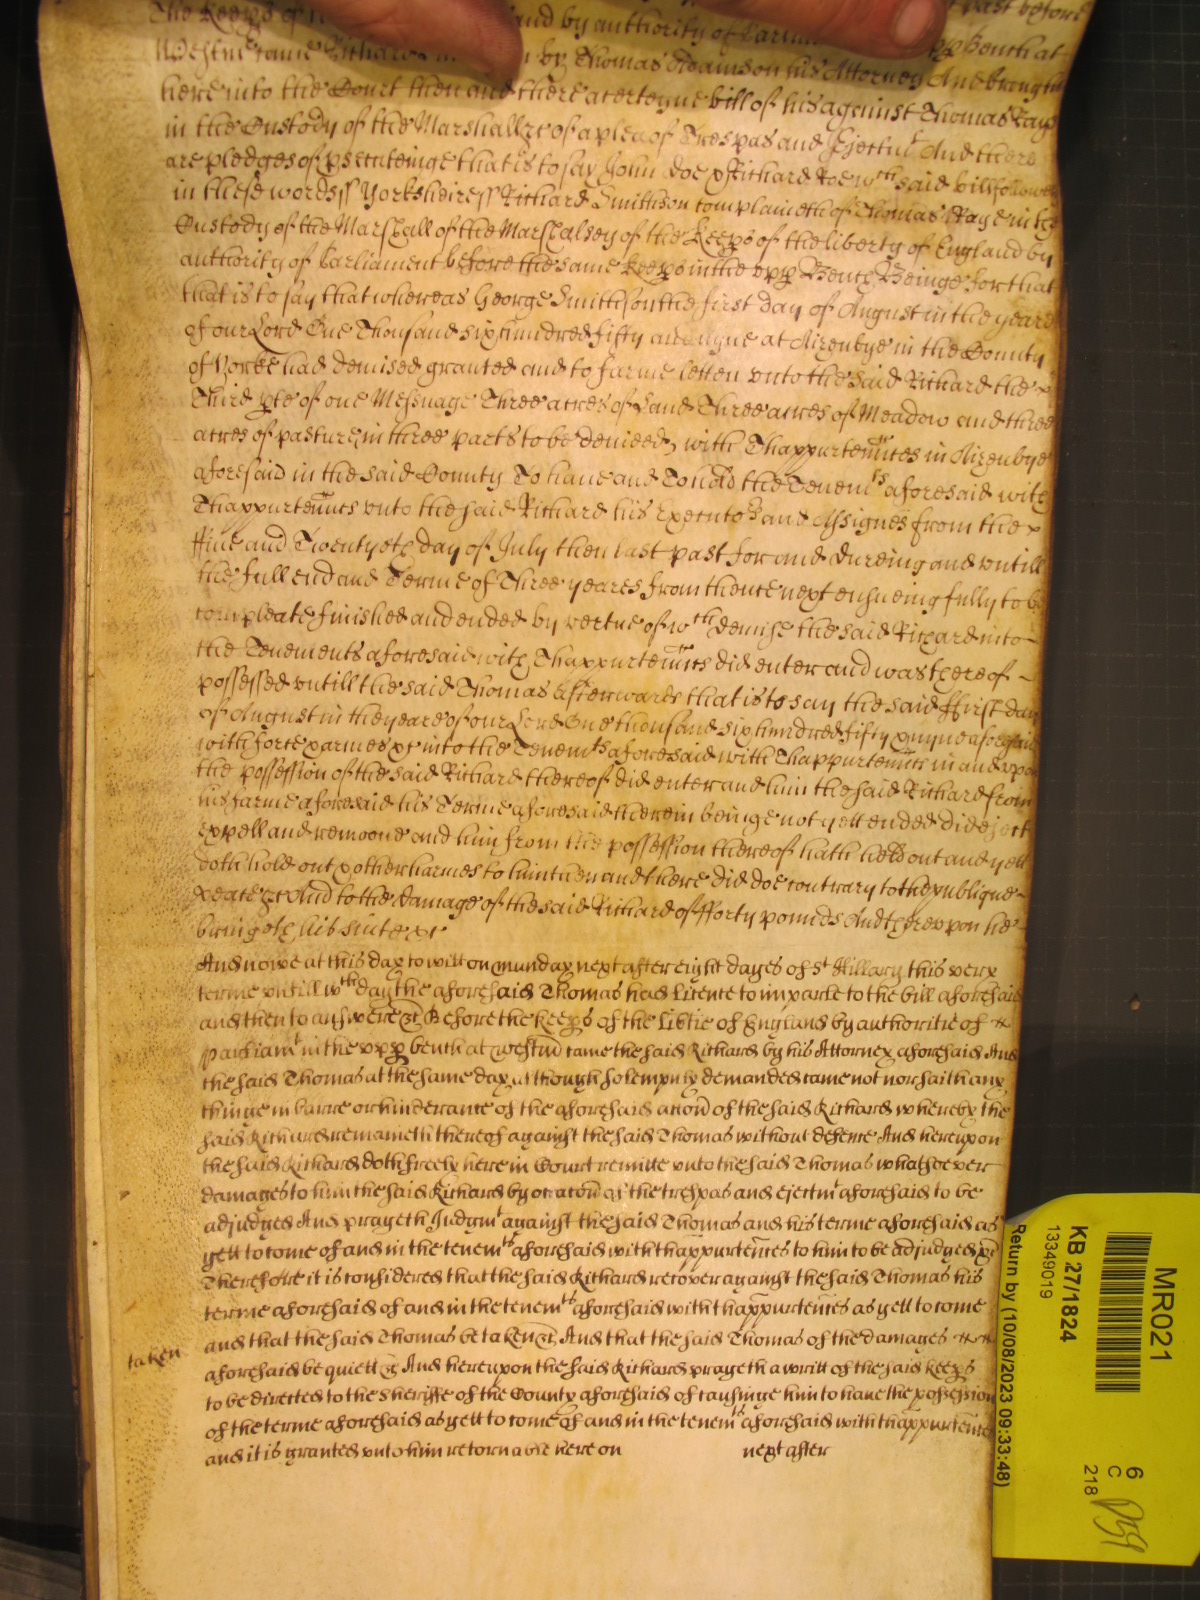 The Keeps of and by authority of Parliam past before
Westm came Richard by Thomas Adamson his Attorney And brought
here into the Court then and there a certeyne bill of his against Thomas Raye
in the Custody of the Marshall &c of a plea of Trespas and Ejectmt And there
are pledges of psecuteinge that is to say John Doe & Richard Roe wch said bill followes
in these words ss Yorksheire ss Richard Smithson complaineth of Thomas Raye in the
Custody of the Marshall of the Marshalsey of the Keeps of the liberty of England by
authority of Parliament before the same Keeps in the vpp Bench Beinge For that
that is to say that whereas George Smithson the first day of August in the yeare
of our Lord One Thousand six hundred fifty and nyne at Aizenbye in the County
of Yorke had demised granted and to farme letten vnto the said Richard the
Third pte of one Messuage Three acres of Land Three acres of Meadow and three
acres of pasture in three parts to be devided with Thappurtennces in Aizenbye
aforesaid in the said County To haue and To hold the Tenemts aforesaid with
Thappurtennces vnto the said Richard his Executors and Assignes from the
ffive and Twentyeth day of July then last past for and dureing and vntill
the full end and Terme of Three yeares from thence next ensueing fully to be
compleate finished and ended by vertue of wch demise the said Richard into
the Tenements aforesaid with Thappurtennces did enter and was thereof
possessed vntill the said Thomas Afterwards that is to say the said ffirst day
of August in the yeare of our Lord One thousand six hundred fifty & nyne aforesaid
with force & armes &c into the Tenemts aforesaid with Thappurtennces in and vpon
the possession of the said Richard thereof did enter and him the said Richard from
his farme aforesaid his Terme aforesaid therein beinge not yett ended did eject
expell and remoove and him from his possession thereof hath held out and yett
doth hold out & other harmes to him then and there did doe contrary to the publique
peace &c And to the damage of the said Richard of fforty pounds And therevpon he
bringeth his suite &c
And nowe at this day to witt on munday next after eight dayes of St Hillary this very
terme vntill wch day the aforesaid Thomas head licence to imparle to the bill aforesaid
and then to answere &c Before the Keeps of the libtie of England by authoritie of
parliamt in the vpp bench at westm came the said Richard by his Attorney aforesaid And
the said Thomas at the same day although solempnly demanded came not nor saith any
thinge in barre or hinderance of the aforesaid accon of the said Richard whereby the
said Richard remaineth thereof against the said Thomas without defence And hereupon
the said Richard doth freely here in Court remitte vnto the said Thomas whatsoever
damages to him the said Richard by occacon of the trespas and ejectmt aforesaid to be
adjudged And prayeth Judgmt against the said Thomas and his terme aforesaid as
yett to come of and in the tenemts aforesaid with thappurtences to him to be adjudged &c
Therefore it is considered that the said Richard recover against the said Thomas his
terme aforesaid of and in the tenemts aforesaid with thappurtences as yett to come
and that the said Thomas be taken &c And that the said Thomas of the damages
taken
aforesaid be quiett &c And hereupon the said Richard prayeth a writt of the said keeps
to be directed to the Sheriffe of the County aforesaid of causinge him to haue the possession
of the terme aforesaid as yett to come of and in the tenemts aforesaid with thappurtences
and it is granted vnto him retornable here on next after
MR021
KB 27/1824
13349019
Return by (10/08/2023 09:33:48)
6
C
218
D59